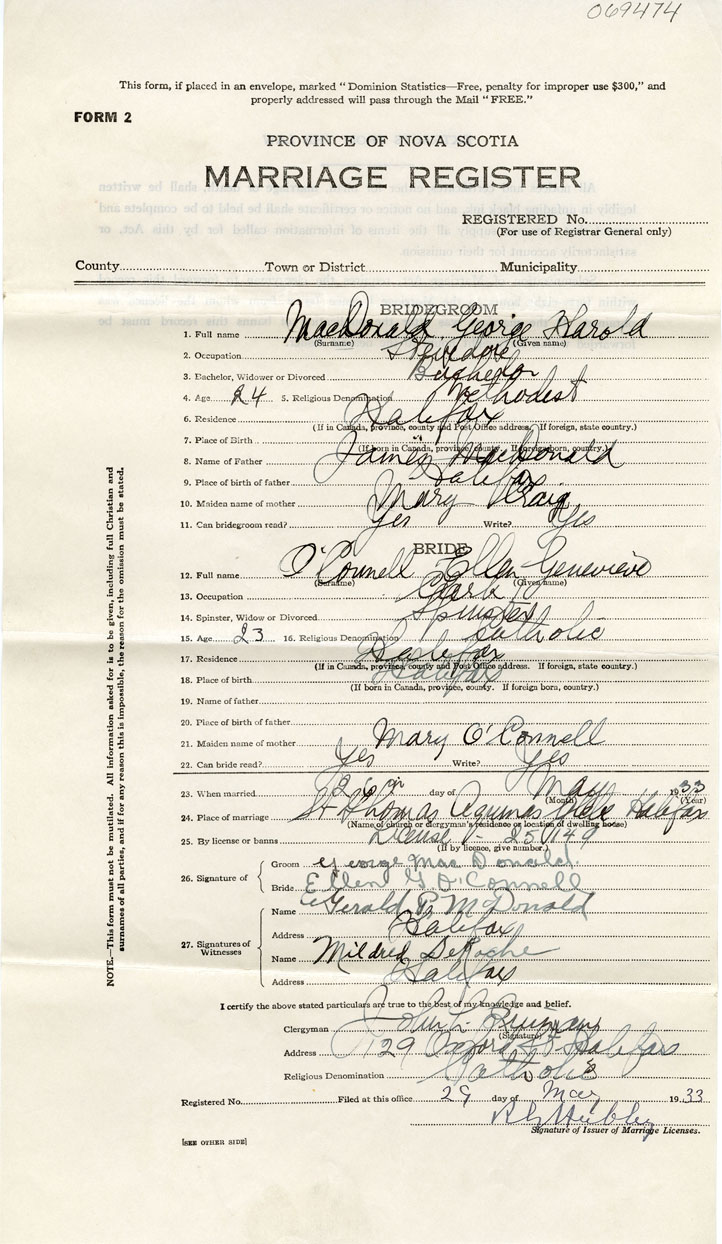 069474
This form, if placed in an envelope, marked "Dominion Statistics—Free, penalty for improper use $300," and
properly addressed will pass through the Mail "FREE."
FORM 2
PROVINCE OF NOVA SCOTIA
MARRIAGE REGISTER
REGISTERED No.
(For use of Registrar General only)
County Town or District Municipality
BRIDEGROOM
1. Full name MacDonald George Harold
(Surname) (Given name)
2. Occupation Stevedore
3. Bachelor, Widower or Divorced Bachelor
4. Age 24 5. Religious Denomination Methodist
6. Residence Halifax
(If in Canada, province, county and Post Office address. If foreign, state country.)
7. Place of Birth "
(If born in Canada, province, county. If foreign born, country.)
8. Name of Father James MacDonald
9. Place of birth of father Halifax
10. Maiden name of mother Mary Craig
11. Can bridegroom read? Yes Write? Yes
BRIDE
12. Full name O'Connell Ellen Genevieve
(Surname) (Given name)
13. Occupation Clerk
14. Spinster, Widow or Divorced Spinster
15. Age 23 16. Religious Denomination Catholic
17. Residence Halifax
(If in Canada, province, county and Post Office address. If foreign, state country.)
18. Place of birth Halifax
(If born in Canada, province, county. If foreign born, country.)
19. Name of father
20. Place of birth of father
21. Maiden name of mother Mary O'Connell
22. Can bride read? Yes Write? Yes
23. When married 26th day of May 1933
(Month) (Year)
24. Place of marriage St Thomas Aquinas Glebe Halifax
(Name of church or clergyman's residence or location of dwelling house)
25. By license or banns License 25149
(If by licence, give number.)
26. Signature of
Groom George MacDonald.
Bride Ellen G. O'Connell
27. Signatures of Witnesses
Name Gerald P. McDonald
Address Halifax
Name Mildred DeRoche
Address Halifax
I certify the above stated particulars are true to the best of my knowledge and belief.
Clergyman John L.
(Signature)
Address 129 Oxford St Halifax
Religious Denomination Catholic
Registered No. Filed at this office 29 day of May 1933
Signature of Issuer of Marriage Licenses.
[SEE OTHER SIDE]
NOTE.—This form must not be mutilated. All information asked for is to be given, including full Christian and
surnames of all parties, and if for any reason this is impossible, the reason for the omission must be stated.